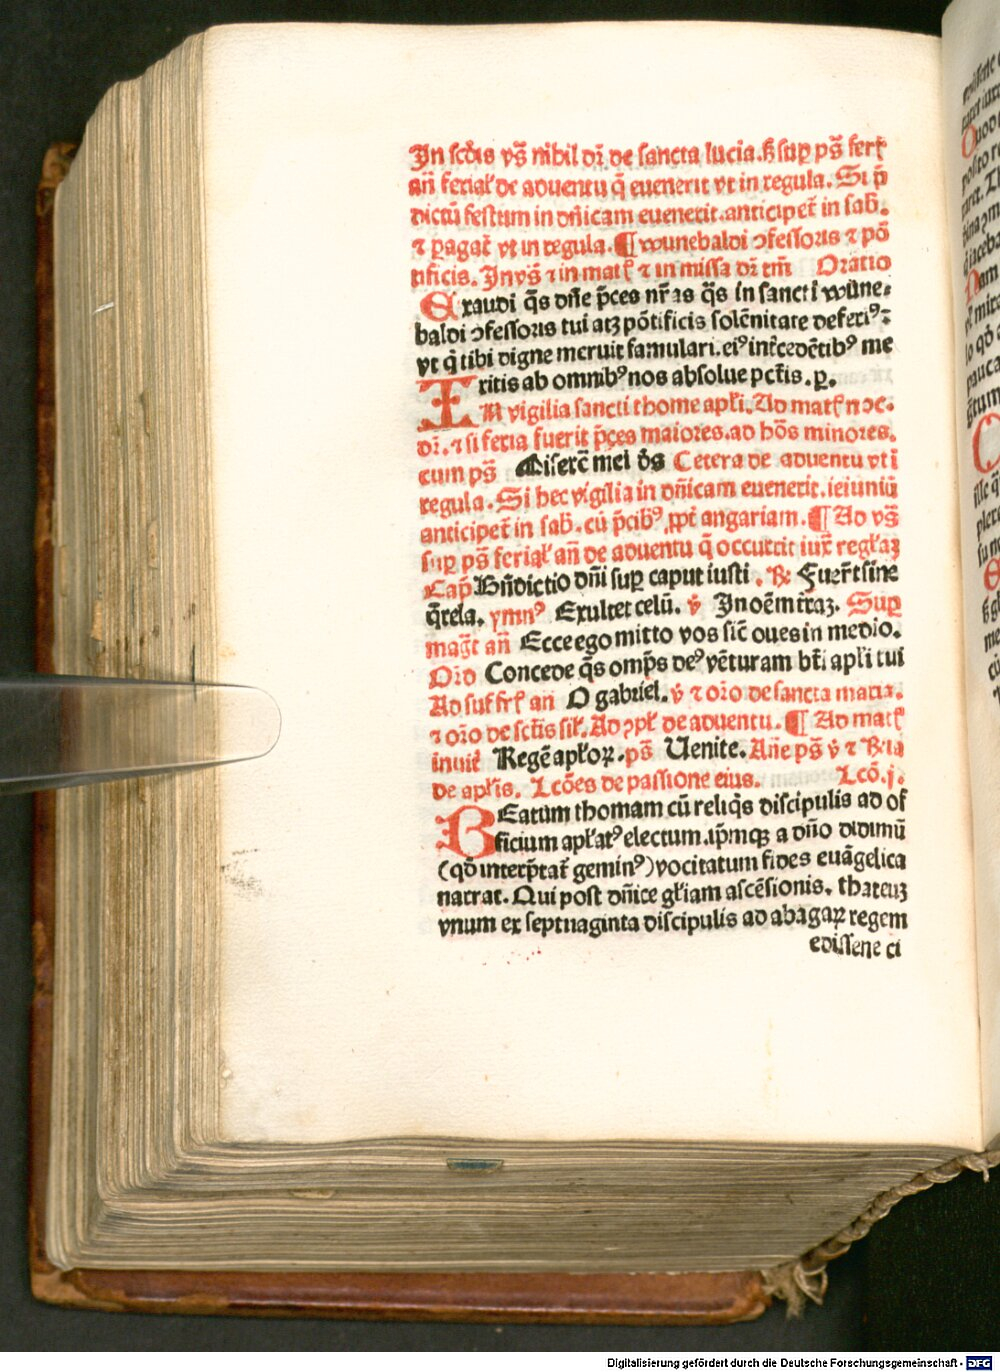 In scd̄is vs̄ nihil dr̄ de sancta lucia. sꝫ suꝑ ps̄ ferł
añ feriał de aduentu q̄ euenerit vt in regula. Si p̄
dictū festum in dñicam euenerit. anticipet̄ in sab.
⁊ ꝑagat̄ vt in regula. ¶ wunebaldi ↄfessoris ⁊ pō
tificis. In vs̄ ⁊ in matł ⁊ in missa dr̄ tm̄ Oratio
Exaudi q̄s dñe p̄ces nr̄as q̄s in sancti wūne⸗
baldi ↄfessoris tui atꝫ pōtificis solēnitate deferiꝰ⁊
vt q̄ tibi digne meruit famulari. eiꝰ intcedētibꝰ me
ritis ab omnibꝰ nos absolue pctīs. ꝑ.
IN vigilia sancti thome apłi. Ad matł nͻc.
dr̄. ⁊ si feria fuerit p̄ces maiores. ad hōs minores.
cum ps̄ Miserc̄ mei ds̄ Cetera de aduentu vt ī
regula. Si hec vigilia in dñicam euenerit. ieiuniū
anticipet̄ in sab. cū p̄cibꝰ ꝓpt̄ angariam. ¶ Ad vs̄
suꝑ ps̄ feriał añ de aduentu q̄ occurrit iuxͣ regłaꝫ
Cap̄ Bn̄dictio dñi suꝑ caput iusti. ℟ Fuert̄ sine
q̄rela. ymnꝰ Exultet celū. v̄ In oēm traꝫ. Suꝑ
mag̃t añ Ecce ego mitto vos sic̄ oues in medio.
Orō Concede q̄s omp̄s deꝰ vēturam bti apłi tui
Ad suf frł añ O gabriel. v̄ ⁊ orō de sancta maria.
⁊ orō de sctīs sił. Ad ↄpł de aduentu. ¶ Ad matł
inuit̄ Regē apłoꝝ. ps̄ Uenite. Añe ps̄ v̄ ⁊ ℟ia
de apłis. Lcōes de passione eius. Lcō. j.
BEatum thomam cū reliq̄s discipulis ad of
ficium apłatꝰ electum. ip̄mqꝫ a dño didimū
(qd̄ interp̄tat̄ geminꝰ) vocitatum fides euāgelica
narrat. Qui post dñice głiam ascēsionis. thateuꝫ
vnum ex septuaginta discipulis ad abagaꝝ regem
edissene ci
Digitalisierung gefördert durch die Deutsche Forschungsgemeinschaft - DFG